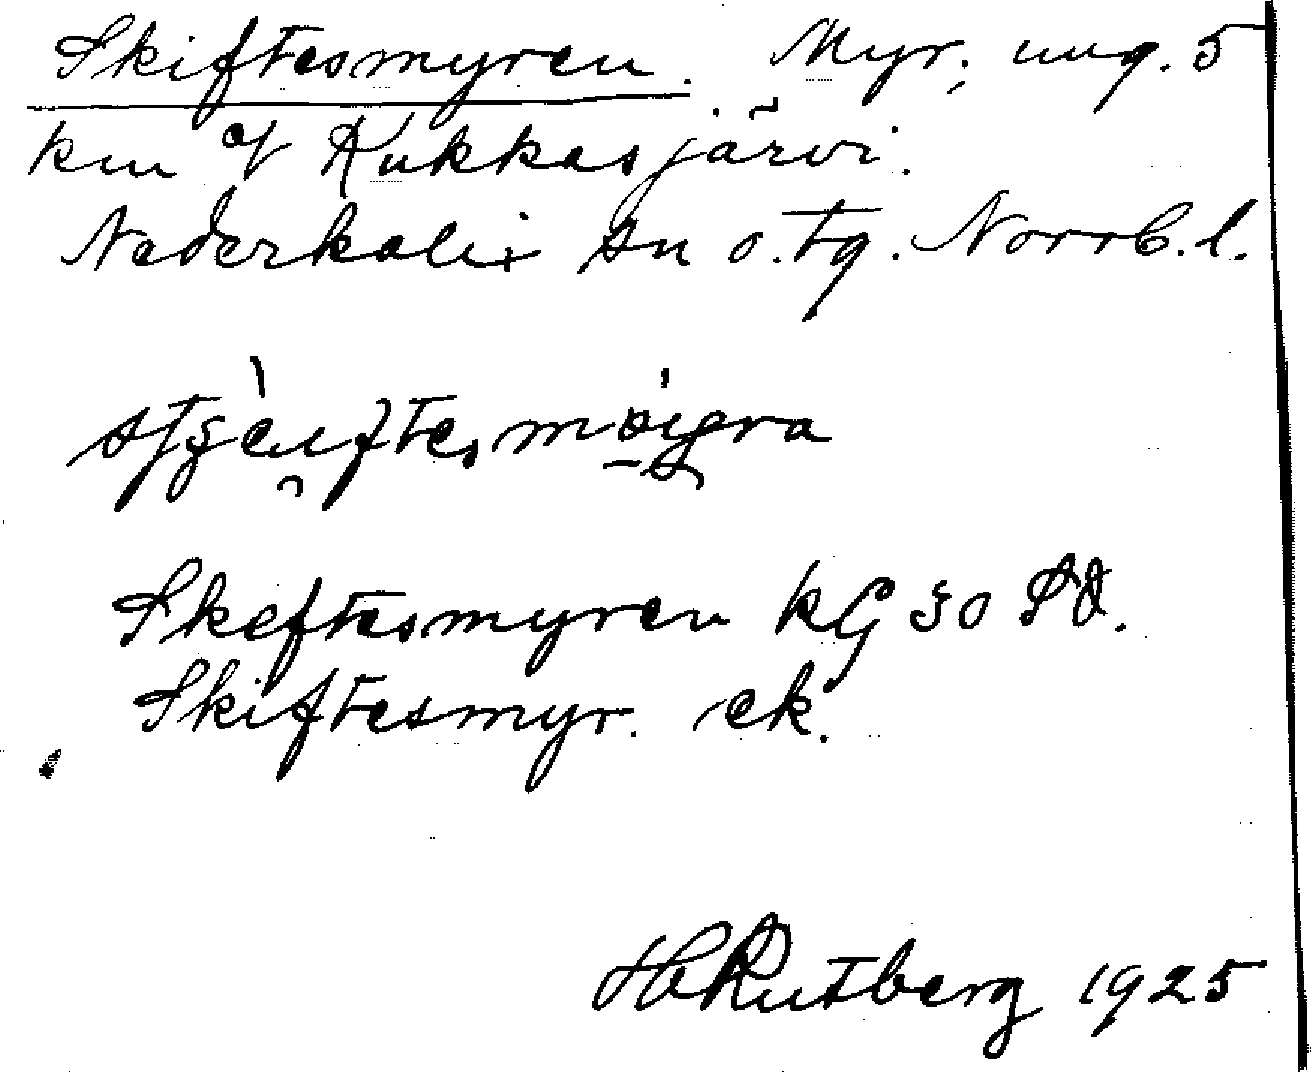 Skiftesmyren. Myr, ung. 5
km of Kukkasjärvi.
Nederkalix sn o. tg. Norrb. l.
Skeftesmyren kG 30
Skiftesmyr. ek.
H Rutberg 1925